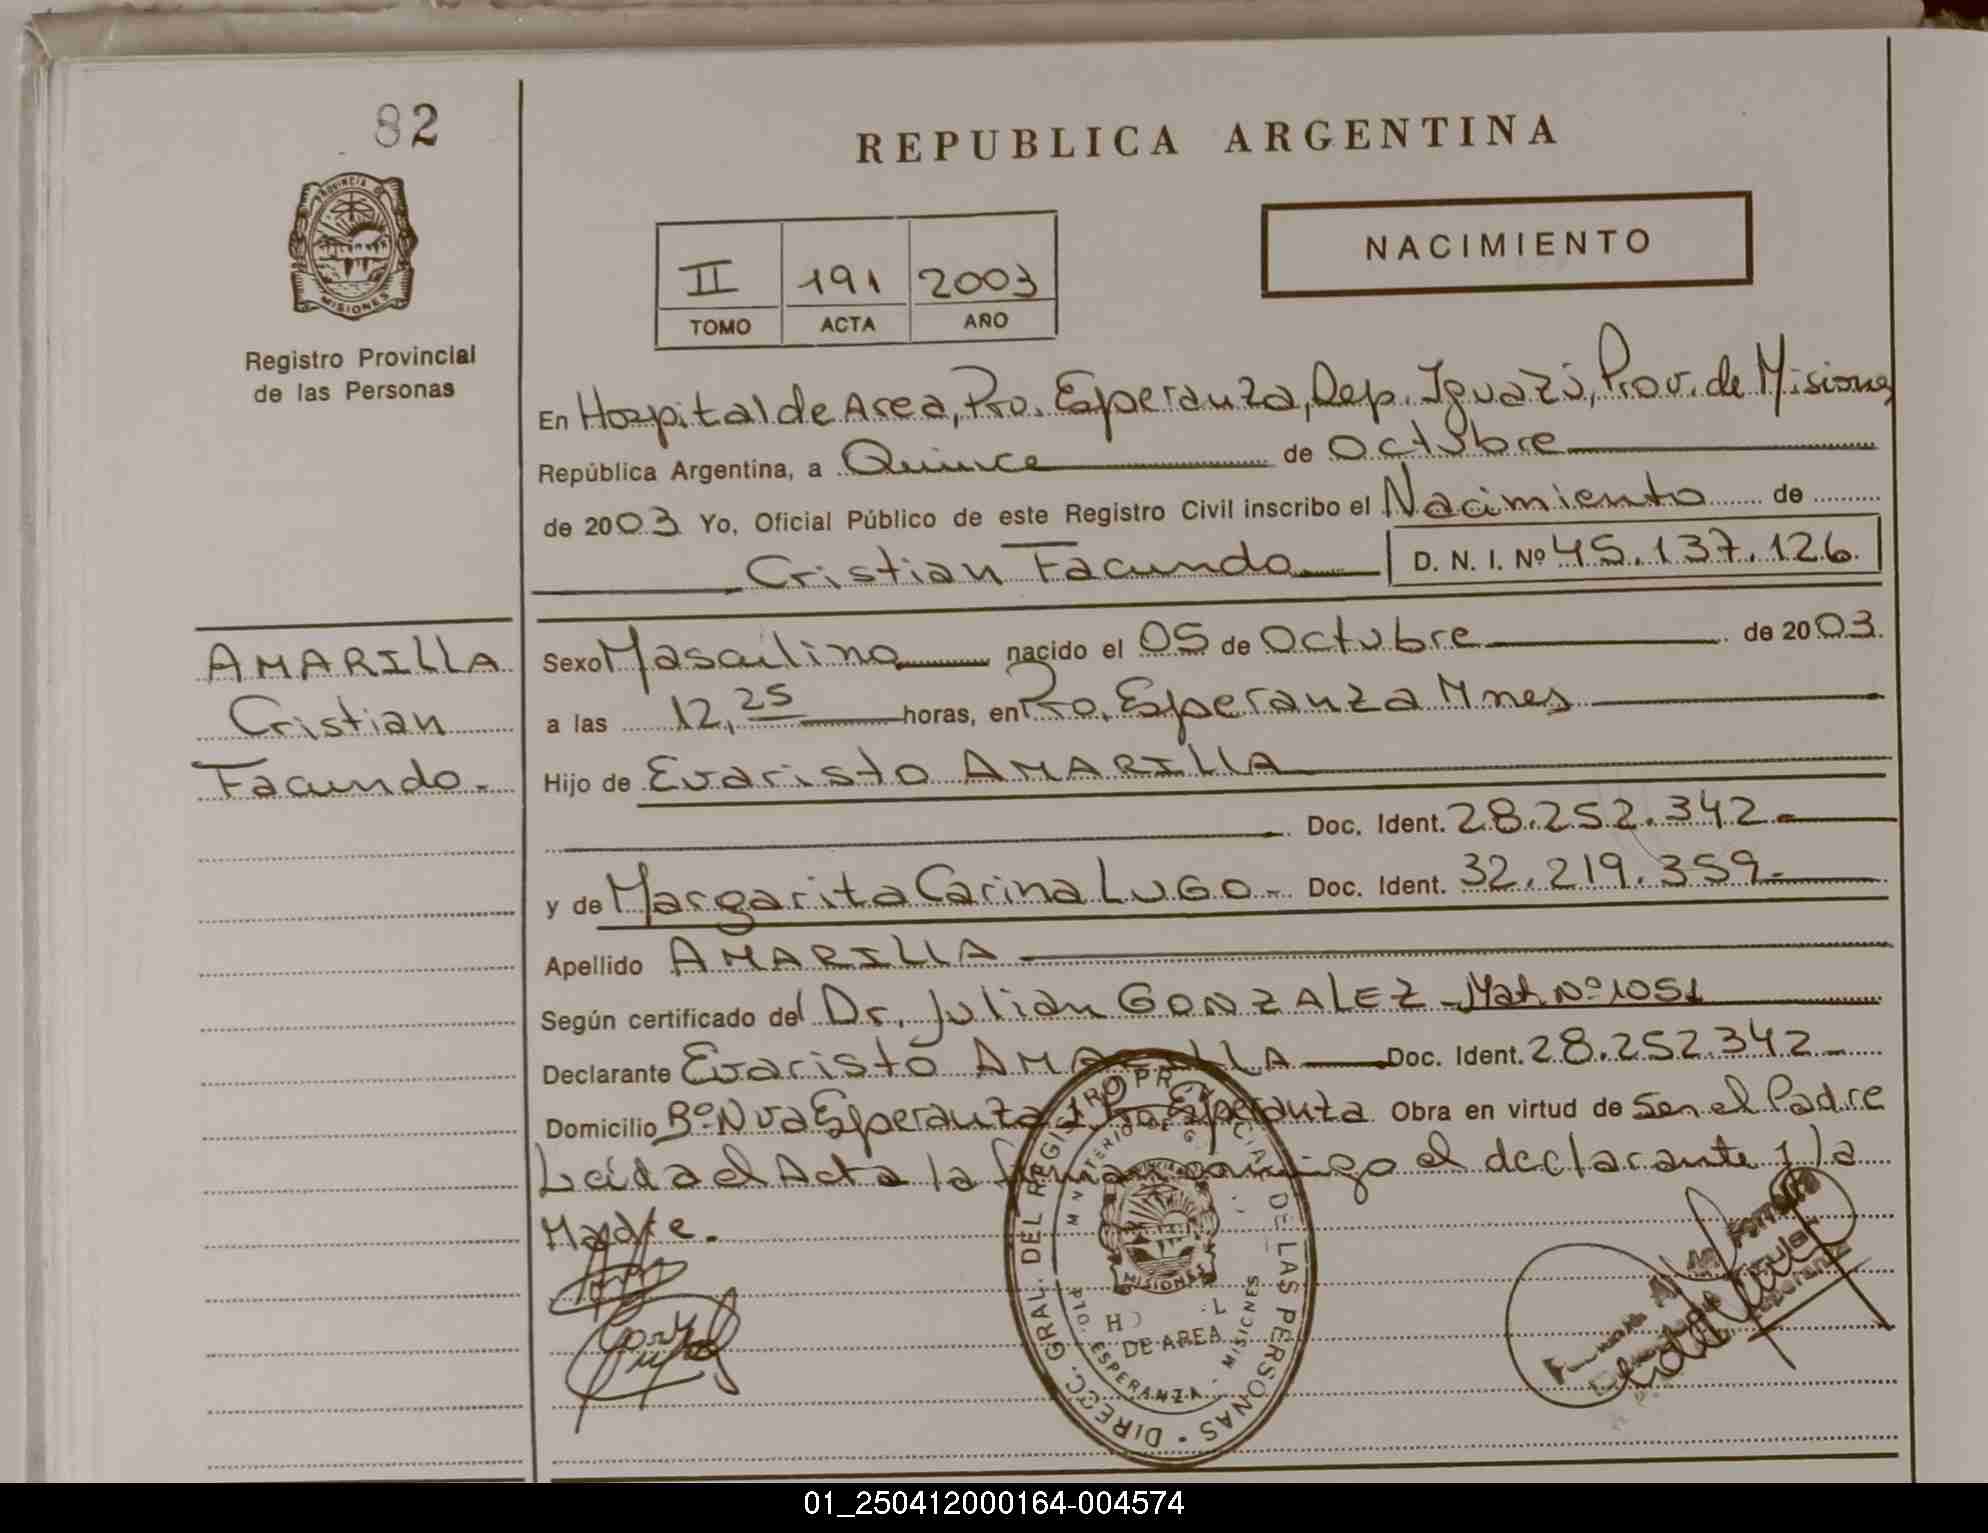 82
PROVINCIA DE
MISIONES
Registro Provincial
de las Personas
REPUBLICA ARGENTINA
II 191 2003
TOMO ACTA AÑO
NACIMIENTO
En Hospital de Area, Pto. Esperanza, Dep. Iguazú, Prov. de Misiones
República Argentina, a Quince de Octubre
de 2003 Yo, Oficial Público de este Registro Civil inscribo el Nacimiento de
Cristian Facundo D. N. I. Nº 45.137.126.
AMARILLA
Cristian
Facundo.-
Sexo Masculino nacido el 05 de Octubre de 2003.
a las 12,25 horas, en Pto. Esperanza Mnes
Hijo de Evaristo AMARILLA
Doc. Ident. 28.252.342.-
y de Margarita Carina LUGO.- Doc. Ident. 32.219.359.-
Apellido AMARILLA
Según certificado del Dr. Julian GONZALEZ - Mat. Nº 1051
Declarante Evaristo AMARILLA Doc. Ident. 28.252.342.-
Domicilio Bº Nva Esperanza, Pto Esperanza Obra en virtud de Ser el Padre
Leída el Acta la firman conmigo el declarante y la
Madre.
DIRECC. GRAL. DEL REGISTRO PROVINCIAL DE LAS PERSONAS
MINISTERIO DE G
MISIONES
DE AREA
PTO. ESPERANZA - MISIONES
01_250412000164-004574